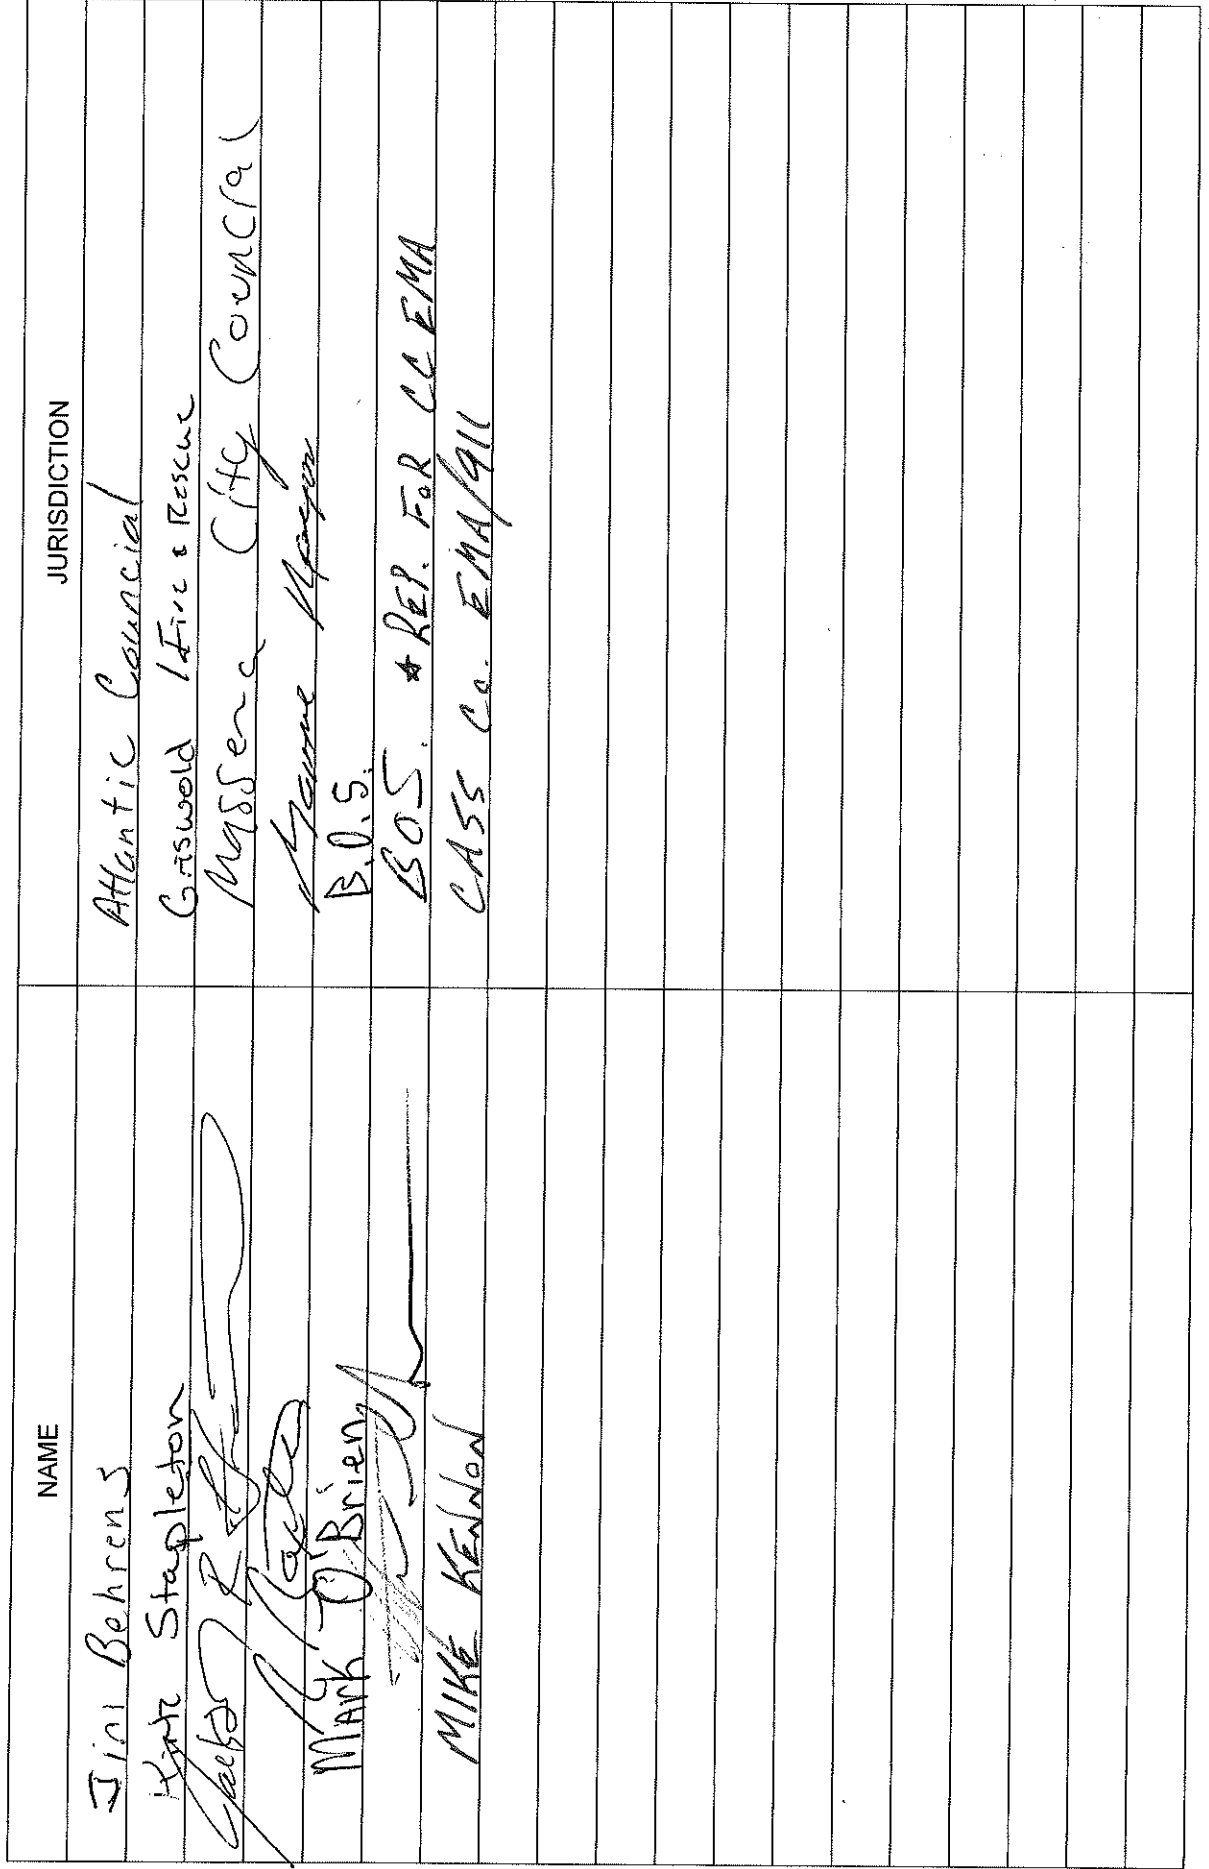 NAME JURISDICTION
Jim Behrens Atlantic Councial
Stapleton Griswold Fire & Rescue
R Massena City Council
Mayor
Mark O'Brien B.O.S.
BOS. * REP. FOR CC EMA
MIKE KENNON CASS Co. EMA/911